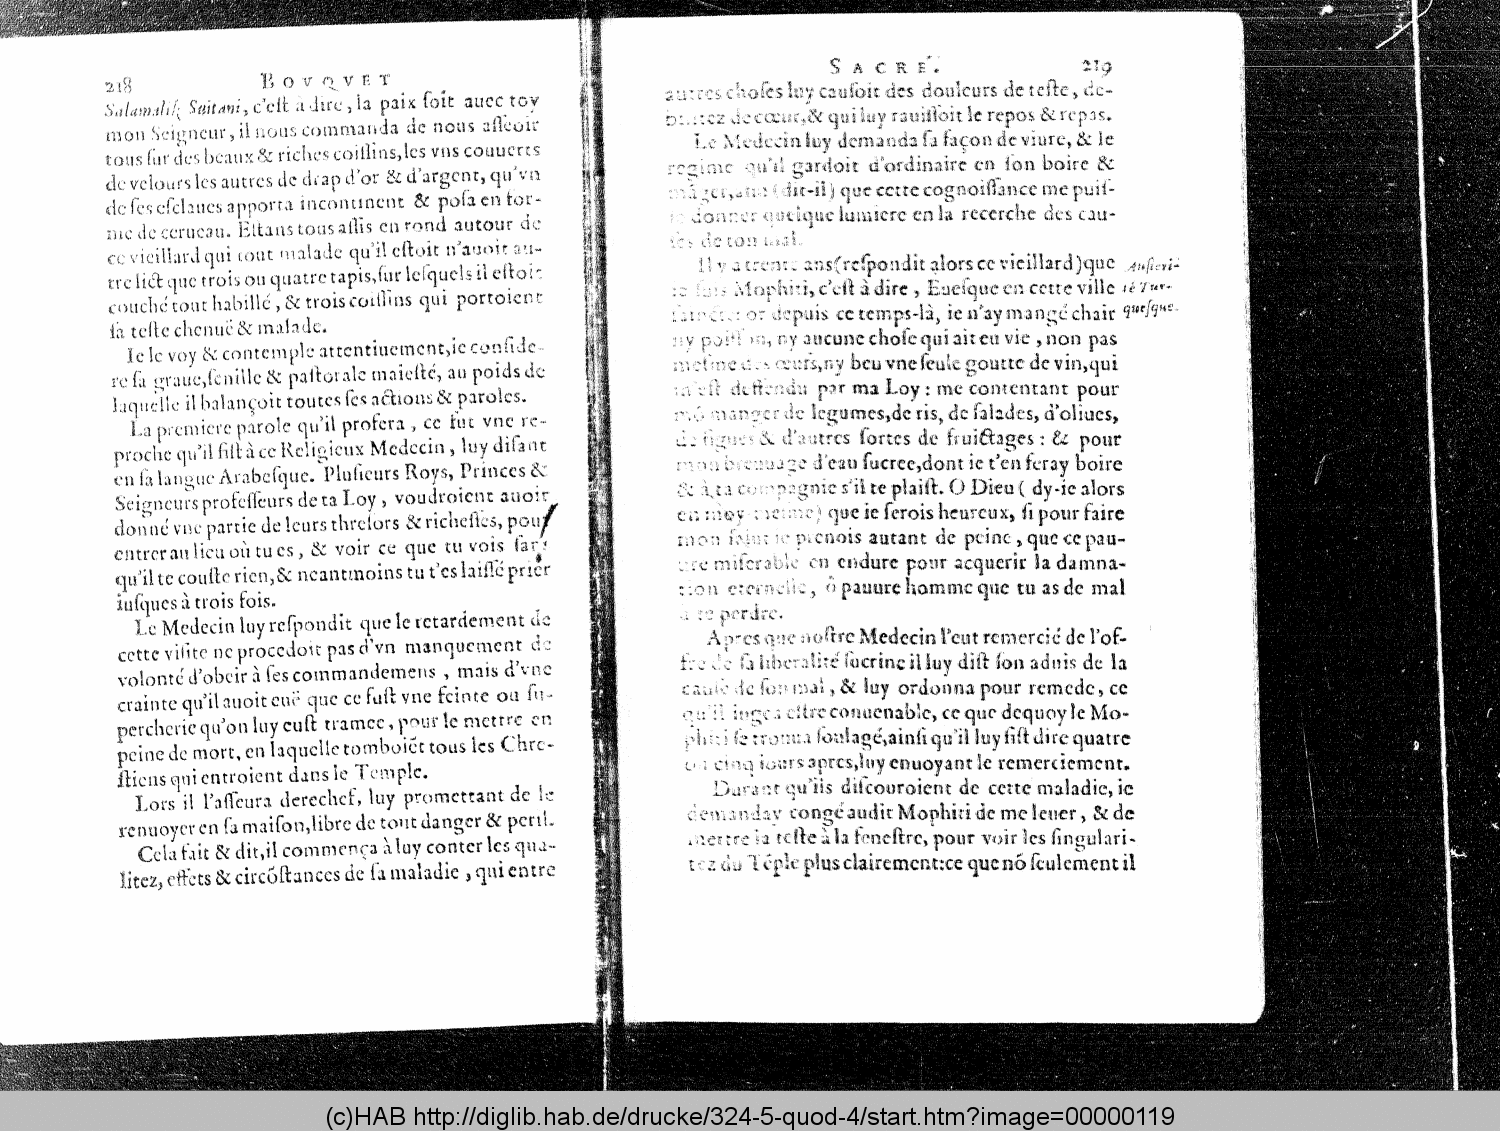 218 BOVQVET
Salamalisç Suitani, c'est à dire, la paix soit auec toy
mon Seigneur, il nous commanda de nous asseoir
tous sur des beaux & riches coissins, les vns couuerts
de velours les autres de drap d'or & d'argent, qu'vn
de ses esclaues apporta incontinent & posa en for-
me de cerueau. Estans tous assis en rond autour de
ce vieillard qui tout malade qu'il estoit n'auoit au-
tre lict que trois ou quatre tapis, sur lesquels il estoit
couché tout habillé, & trois coissins qui portoient
sa teste chenuë & malade.
Ie le voy & contemple attentiuement, ie conside-
re sa graue, senille & pastorale maiesté, au poids de
laquelle il balançoit toutes ses actions & paroles.
La premiere parole qu'il profera, ce fut vne re-
proche qu'il fist à ce Religieux Medecin, luy disant
en sa langue Arabesque. Plusieurs Roys, Princes &
Seigneurs professeurs de ta Loy, voudroient auoir
donné vne partie de leurs thresors & richesses, pour
entrer au lieu où tu es, & voir ce que tu vois sans
qu'il te couste rien, & neantmoins tu t'es laissé prier
iusques à trois fois.
Le Medecin luy respondit que le retardement de
cette visite ne procedoit pas d'vn manquement de
volonté d'obeir à ses commandemens, mais d'vne
crainte qu'il auoit euë que ce fust vne feinte ou su-
percherie qu'on luy eust tramee, pour le mettre en
peine de mort, en laquelle tomboiēt tous les Chre-
stiens qui entroient dans le Temple.
Lors il l'asseura derechef, luy promettant de le
renuoyer en sa maison, libre de tout danger & peril.
Cela fait & dit, il commença à luy conter les qua-
litez, effets & circōstances de sa maladie, qui entre
SACRÉ. 219
autres choses luy causoit des douleurs de teste, de-
bilitez de cœur, & qui luy rauissoit le repos & repas.
Le Medecin luy demanda sa façon de viure, & le
regime qu'il gardoit d'ordinaire en son boire &
māger, afin (dit-il) que cette cognoissance me puis-
se donner quelque lumiere en la recerche des cau-
ses de ton mal.
Il y a trente ans (respondit alors ce vieillard) que
ie suis Mophiti, c'est à dire, Euesque en cette ville
saincte: or depuis ce temps-là, ie n'ay mangé chair
ny poisson, ny aucune chose qui ait eu vie, non pas
mesme des œufs, ny beu vne seule goutte de vin, qui
m'est deffendu par ma Loy: me contentant pour
mō manger de legumes, de ris, de salades, d'oliues,
de figues & d'autres sortes de fruictages: & pour
mon breuuage d'eau sucree, dont ie t'en feray boire
& à ta compagnie s'il te plaist. O Dieu (dy-ie alors
en moy mesme) que ie serois heureux, si pour faire
mon salut ie prenois autant de peine, que ce pau-
ure miserable en endure pour acquerir la damna-
tion eternelle, ô pauure homme que tu as de mal
à te perdre.
Austeri-
té Tur-
quesque.
Apres que nostre Medecin l'eut remercié de l'of-
fre de sa liberalité sucrine il luy dist son aduis de la
cause de son mal, & luy ordonna pour remede, ce
qu'il iugea estre conuenable, ce que dequoy le Mo-
phiti se trouua soulagé, ainsi qu'il luy fist dire quatre
ou cinq iours apres, luy enuoyant le remerciement.
Durant qu'ils discouroient de cette maladie, ie
demanday congé audit Mophiti de me leuer, & de
mettre la teste à la fenestre, pour voir les singulari-
tez du Tēple plus clairement: ce que nō seulement il
(c)HAB http://diglib.hab.de/drucke/324-5-quod-4/start.htm?image=00000119